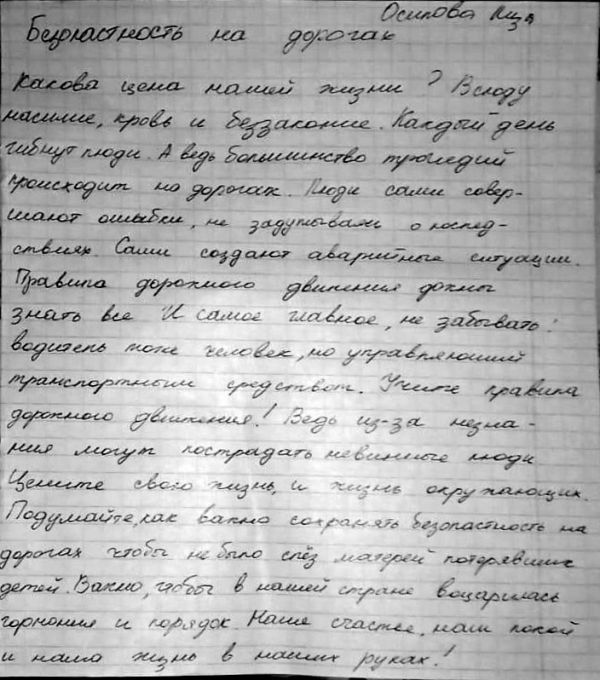 Осипова Лиза
Безопастность на дорогах
Какова цена нашей жизни? Всюду
насилие, кровь и беззаконие. Каждый день
гибнут люди. А ведь большинство трагедий
происходит на дорогах. Люди сами совер-
шают ошибки, не задумываясь о послед-
ствиях. Сами создают аварийные ситуации.
Правила дорожного движения должны
знать все И самое главное, не забывать:
водитель тоже человек, но управляющий
транспортным средством. Учите правила
дорожного движения! Ведь из-за незна-
ния могут пострадать невинные люди
Цените свою жизнь, и жизнь окружающих.
Подумайте, как важно сохранять безопастность на
дорогах чтобы не было слёз матерей потерявших
детей. Важно, чтобы в нашей стране воцарилась
гармония и порядок. Наше счастье, наш покой
и наша жизнь в наших руках!